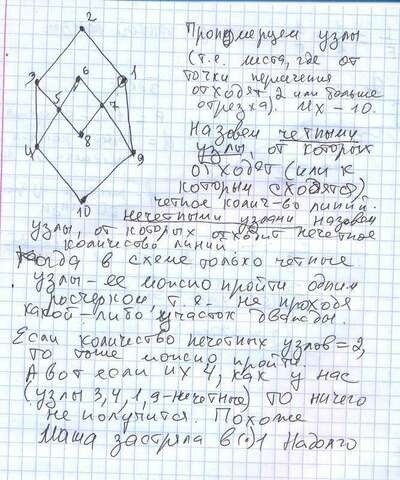 2
3
6
1
5
7
8
4
9
10
Пронумеруем узлы
(т.е. места, где от
точки пересечения
отходят 2 или больше
отрезка). Их – 10.
Назовем четными
узлы, от которых
отходят (или к
которым сходятся)
четное колич-во линий.
Нечетными узлами назовем
узлы, от которых отходит нечетное
количество линий
Когда в схеме только четные
узлы – ее можно пройти одним
росчерком, т.е. не проходя
какой-либо участок дважды.
Если количество нечетных узлов = 2,
то тоже можно пройти.
А вот если их 4, как у нас
(узлы 3, 4, 1, 9 – нечетные) то ничего
не получится. Похоже
Маша застряла в (•) 1 Надолго